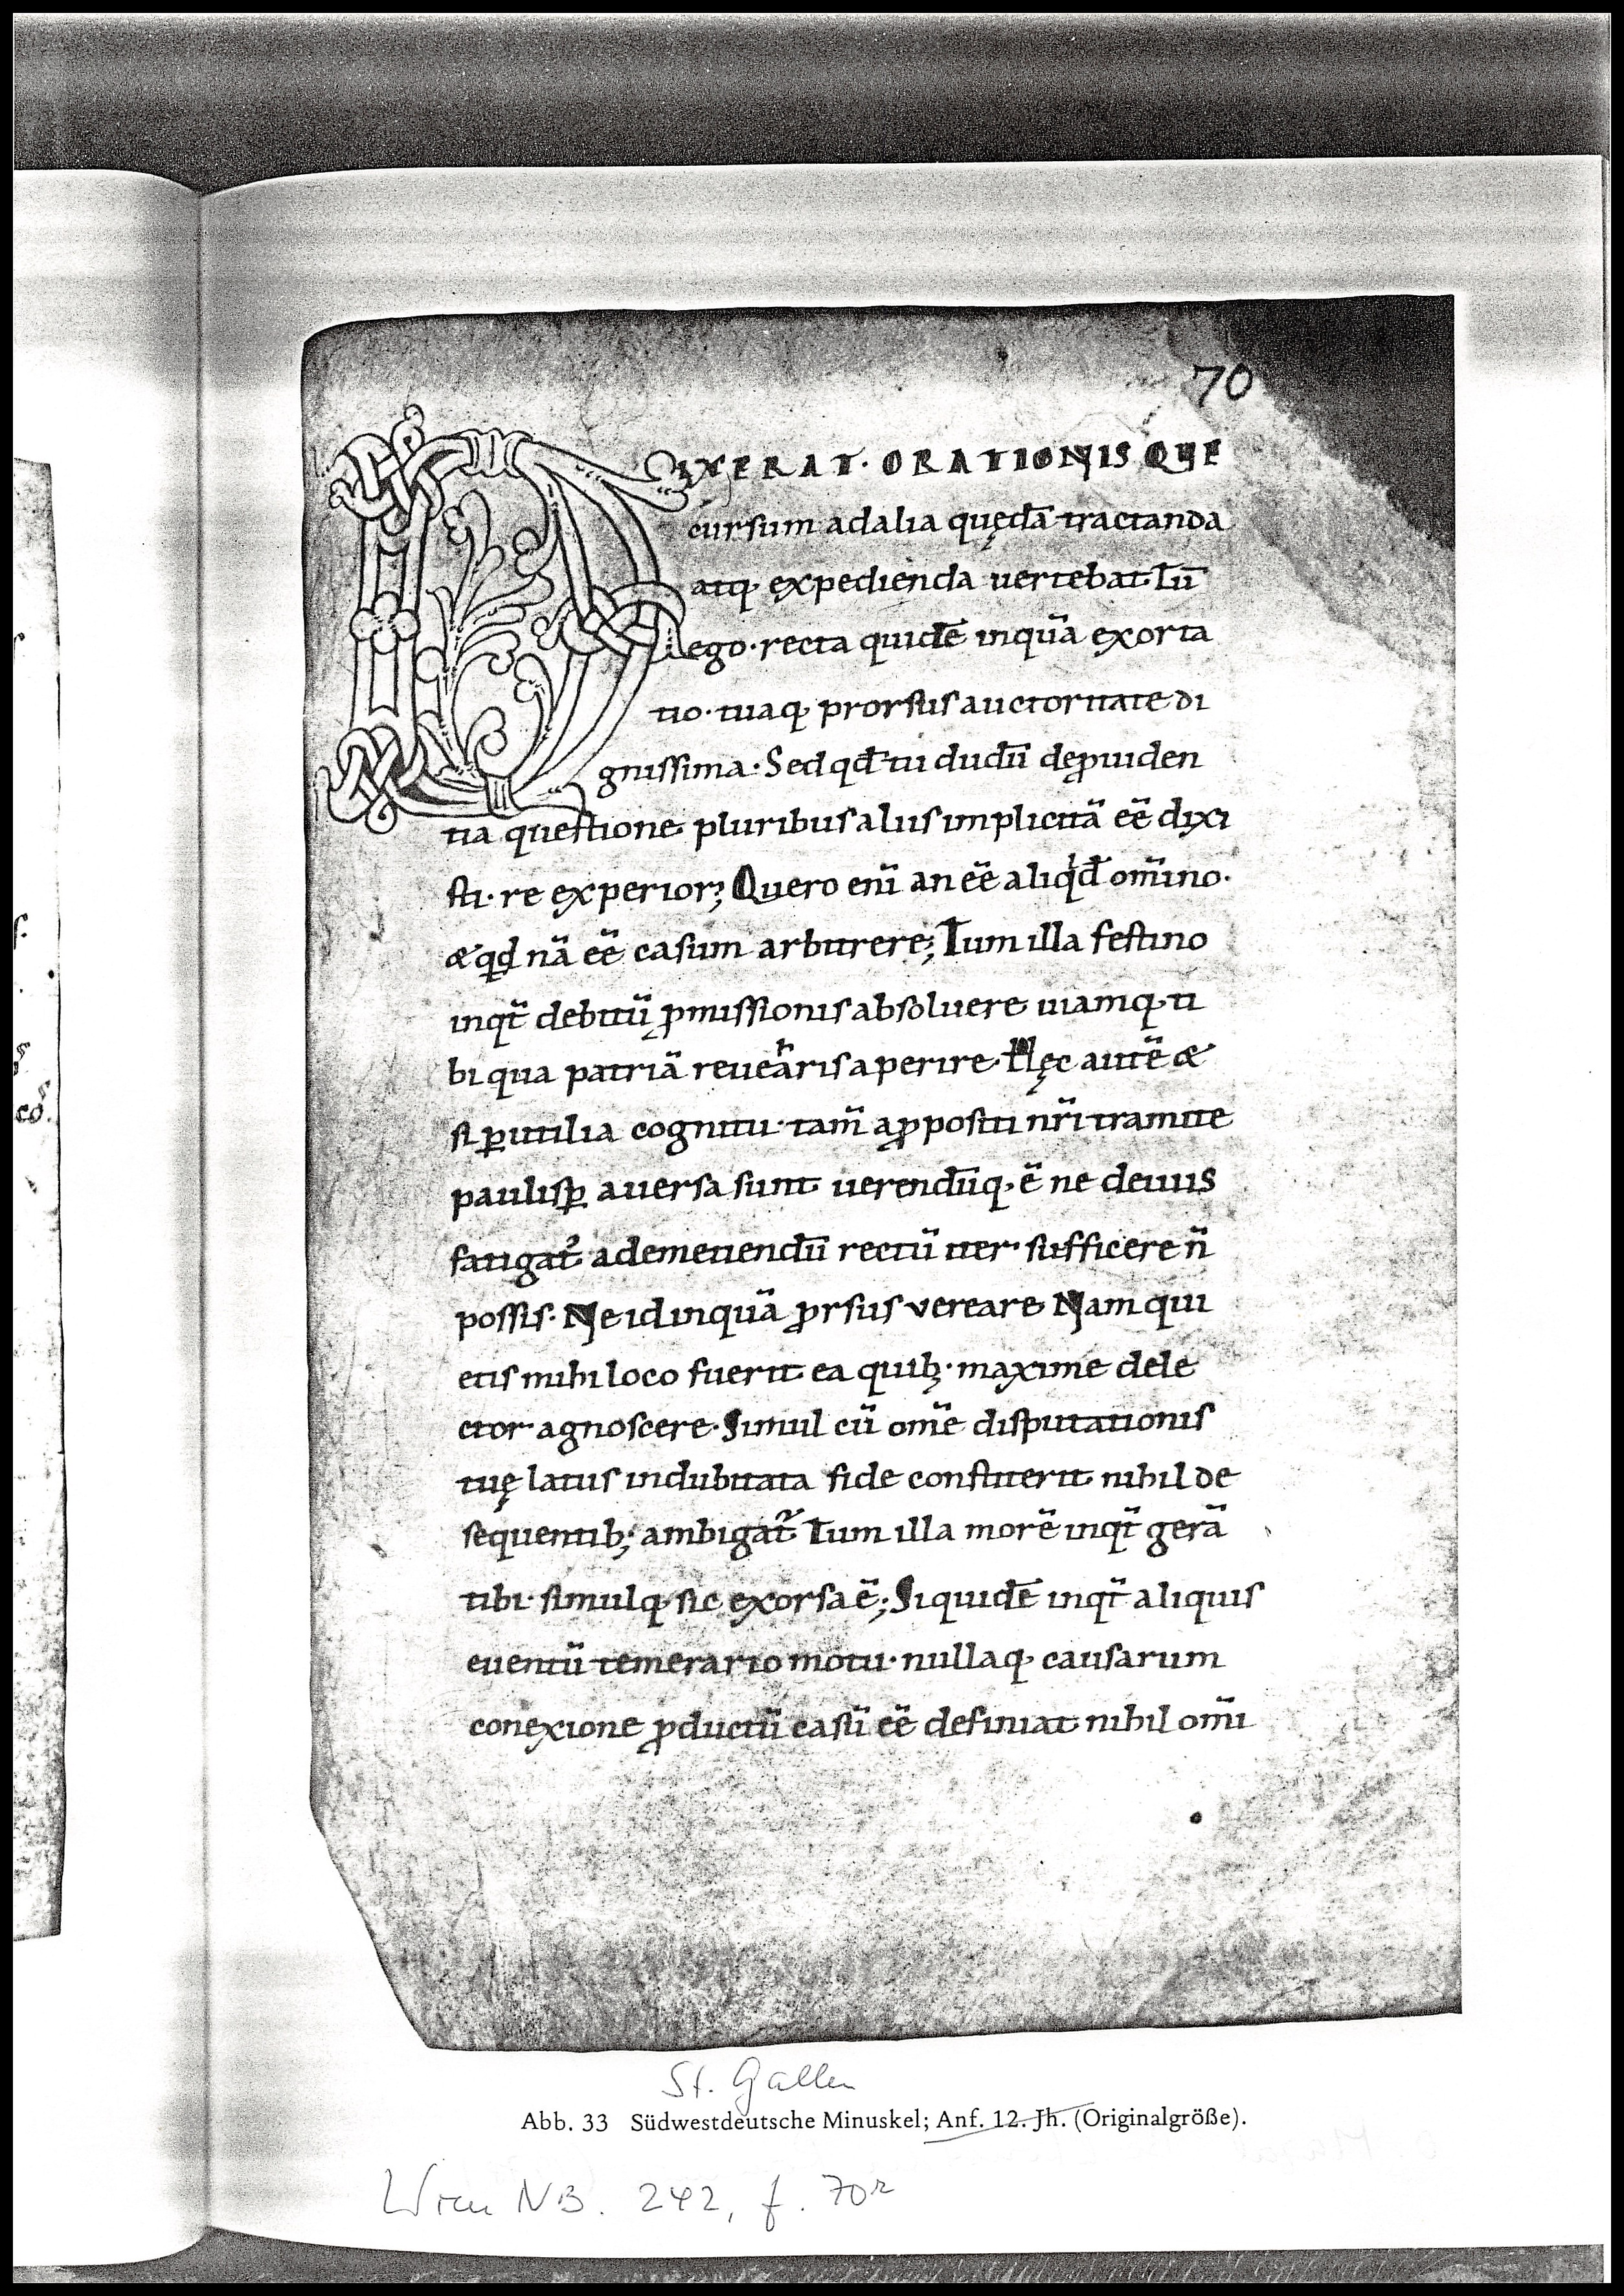 70
DIXERAT· ORATIONIS QUE
cursum ad alia quędā tractanda
atq; expedienda uertebat· Tū
ego· recta quidē inquā exorta
tio· tuaq; prorsus auctoritate di
gnissima· Sed qđ tu dudū de ꝓuiden
tia questione pluribus aliis implicitā eē dixi
sti· re experior; Quero eni an eē aliqđ om̄ino·
& qđ nā eē casum arbitrere; Tum illa festino
inqt̄ debitū ꝓmissionis absoluere uiamq; ti
bi qua patriā reueharis aperire· Hęc autē &
si ꝑutilia cognitu· tam̄ a ꝓposti nr̄i tramite
paulisꝑ auersa sunt uerendūq; ē ne deuiis
fatigat᷒ ad emetiendū rectū iter· sufficere n̄
possis· Ne id inquā ꝓrsus vereare Nam qui
etis mihi loco fuerit ea quib;· maxime dele
ctor agnoscere· Simul cū om̄e disputationis
tuę latus indubitata fide constiterit nihil de
sequentib; ambigat᷒ Tum illa morē inqt̄ gerā
tibi· simulq; sic exorsa ē; Si quidē inqt̄ aliquis
euentū temerario motu· nullaq; causarum
conexione ꝓductū casū eē definiat nihil om̄i
St. Gallen
Abb. 33 Südwestdeutsche Minuskel; Anf. 12. Jh. (Originalgröße).
Wien NB. 242, f. 70r